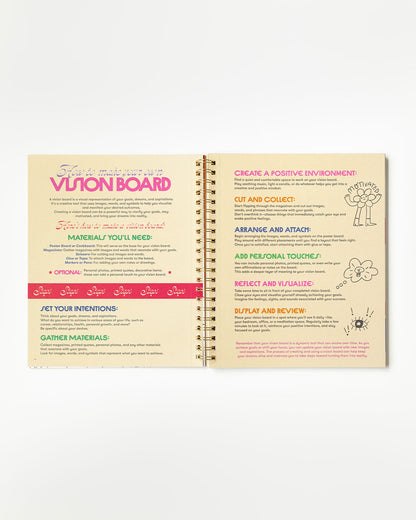 How to make your own
VISION BOARD
A vision board is a visual representation of your goals, dreams, and aspirations.
It's a creative tool that uses images, words, and symbols to help you visualize
and manifest your desired outcomes.
Creating a vision board can be a powerful way to clarify your goals, stay
motivated, and bring your dreams into reality.
Here's how to make a vision board:
MATERIALS YOU'LL NEED:
Poster Board or Corkboard: This will serve as the base for your vision board.
Magazines: Collect magazines with images and words that resonate with your goals.
Scissors: For cutting out images and words.
Glue or Tape: To attach images and words to the board.
Markers or Pens: For adding your own notes or drawings.
OPTIONAL: Personal photos, printed quotes, decorative items:
these can add a personal touch to your vision board.
SET YOUR INTENTIONS:
Think about your goals, dreams, and aspirations.
What do you want to achieve in various areas of your life, such as
career, relationships, health, personal growth, and more?
Be specific about your desires.
GATHER MATERIALS:
Collect magazines, printed quotes, personal photos, and any other materials
that resonate with your goals.
Look for images, words, and symbols that represent what you want to achieve.
CREATE A POSITIVE ENVIRONMENT:
Find a quiet and comfortable space to work on your vision board.
Play soothing music, light a candle, or do whatever helps you get into a
creative and positive mindset.
CUT AND COLLECT:
Start flipping through the magazines and cut out images,
words, and phrases that resonate with your goals.
Don't overthink it—choose things that immediately catch your eye and
evoke positive feelings.
MOTIVATED
ARRANGE AND ATTACH:
Begin arranging the images, words, and symbols on the poster board
Play around with different placements until you find a layout that feels right.
Once you're satisfied, start attaching them with glue or tape.
ADD PERSONAL TOUCHES:
You can include personal photos, printed quotes, or even write your own
affirmations or notes on the board.
This adds a deeper layer of meaning to your vision board.
REFLECT AND VISUALIZE:
Take some time to sit in front of your completed vision board.
Close your eyes and visualize yourself already achieving your goals.
Imagine the feelings, sights, and sounds associated with your success.
DISPLAY AND REVIEW:
Place your vision board in a spot where you'll see it daily—like
your bedroom, office, or a meditation space. Regularly take a few
minutes to look at it, reinforce your positive intentions, and stay
focused on your goals.
Remember that your vision board is a dynamic tool that can evolve over time. As you
achieve goals or shift your focus, you can update your vision board with new images
and aspirations. The process of creating and using a vision board can help keep
your dreams alive and motivate you to take steps toward turning them into reality.